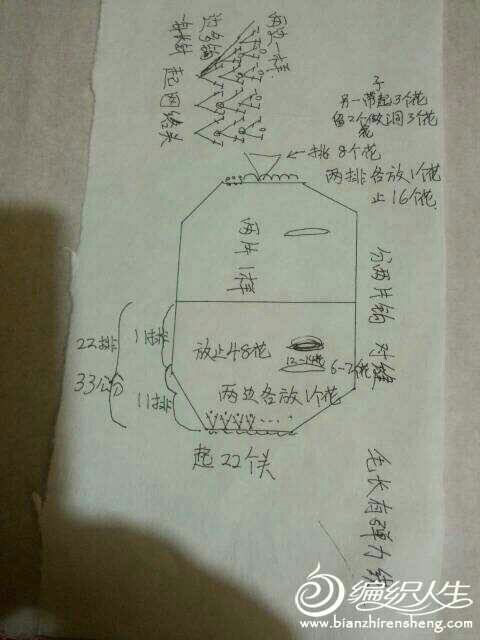 两边一样
边多钩
一斜针
起网络头
子
另一带起3个花
留2个做洞3个花
花
挑8个花
两排各放1个花
止16个花
两片1样
分两片钩 对缝
22排
33公分
11排
11排
放止48花
12-14花
6-7花
两边各放1个花
起22个头
毛长有弹力线
编织人生
www.bianzhirensheng.com